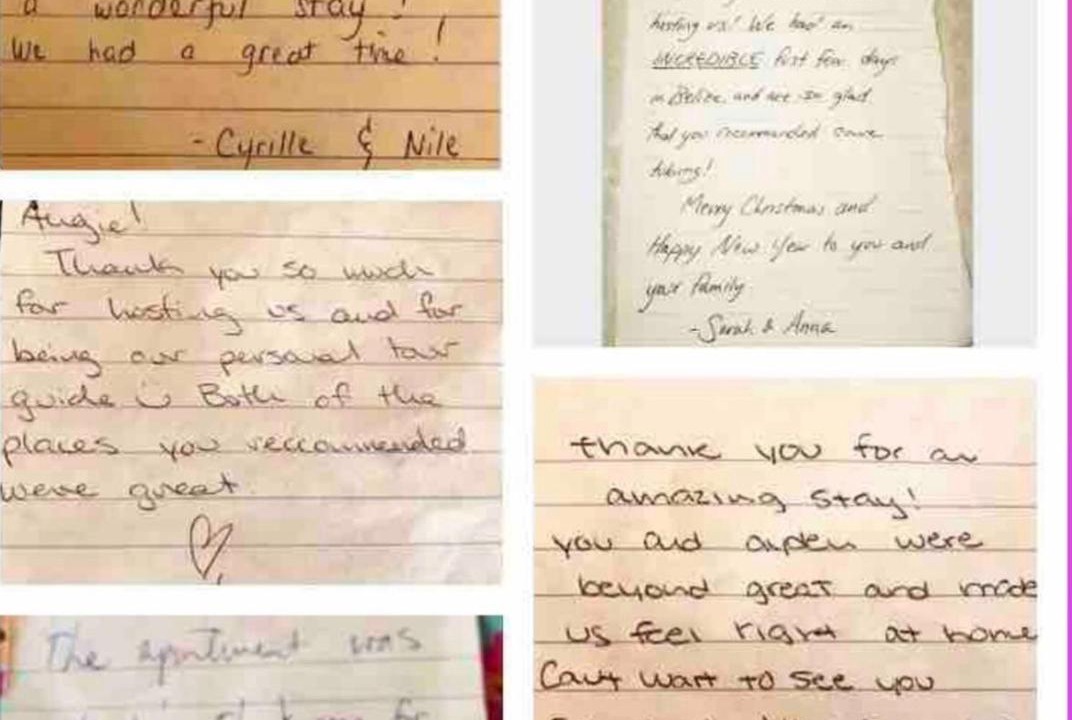 a wonderful stay!
We had a great time!
-Cyrille & Nile
Augie!
Thank you so much
for hosting us and for
being our personal tour
guide Both of the
places you reccommended
were great.
The apartment was
hosting us! We had an
INCREDIBLE first few days
in Belize and are so glad
that you recommended cave
tubing!
Merry Christmas and
Happy New Year to you and
your family
-Sarah & Anna
thank you for an
amazing stay!
you and aspen were
beyond great and made
us feel right at home
Can't wait to see you